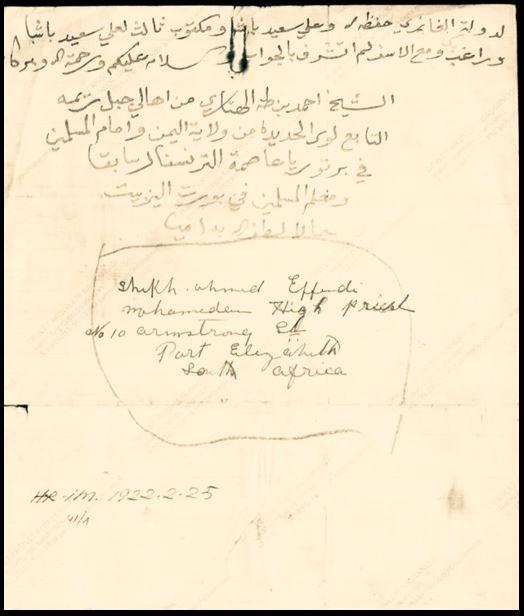 لدولة الغازي حفظه وعلي سعيد باشا ومكتوب ثالث لعلي سعيد باشا
ومع الاسف لم اتشرف بالجواب وسلام عليكم ورحمة الله وبركا
الشيخ احمد بن طه من اهالي جبل ريمه
التابع لوى الحديده من ولاية اليمن وامام المسلمين
في برتوريا عاصمة الترنسفال سابقا
ومعلم المسلمين في بورت اليزبيت
حالا
Shikh ahmed Effendi
mohameden High Priest
No 10 armstrong St
Port Elizabeth
South Africa
HR-İM. 1922.2.25
41/1